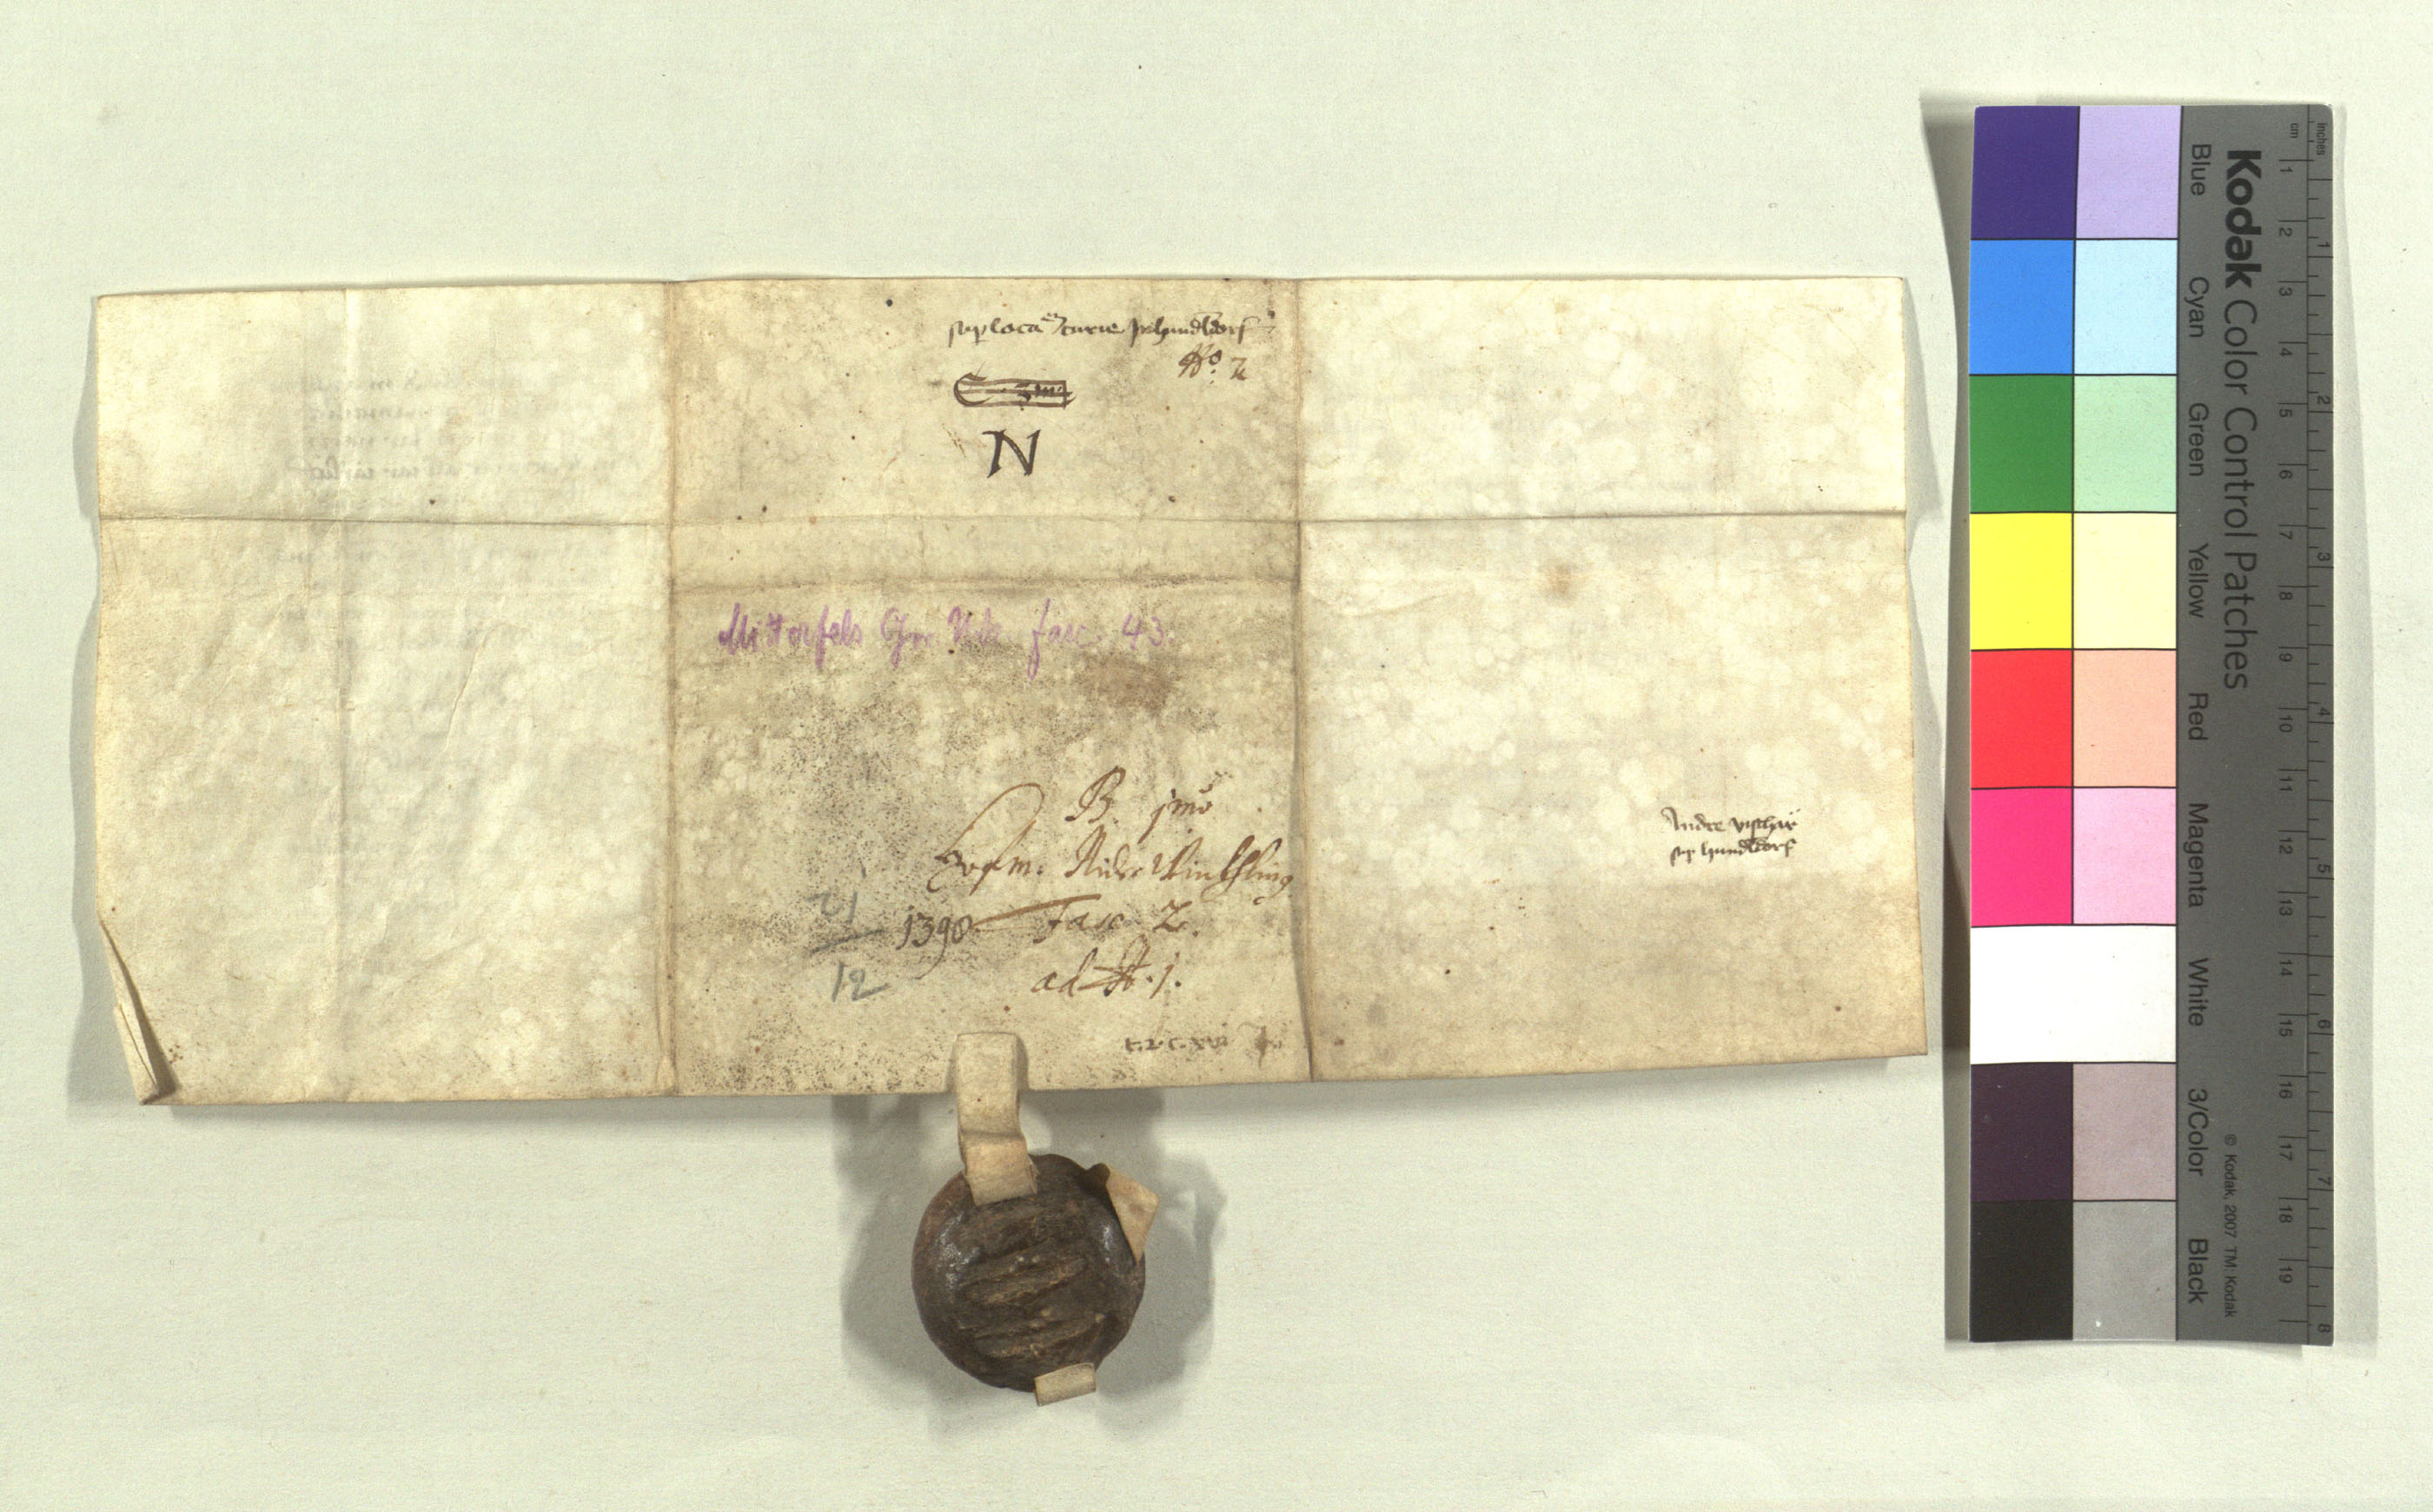 sup loca curie hundldorf
No. 2
N
Mitterfels Ger. Urk. fasc. 43.
B. jmo
Hofm. Nider Winkhling
21 1390 Fasc 2.
12 ad N. 1.
Andre vischär
sup hundldorf
Kodak Color Control Patches
Blue Cyan Green Yellow Red Magenta White 3/Color Black
© Kodak, 2007 TM: Kodak
inches 1 2 3 4 5 6 7 8
cm 1 2 3 4 5 6 7 8 9 10 11 12 13 14 15 16 17 18 19